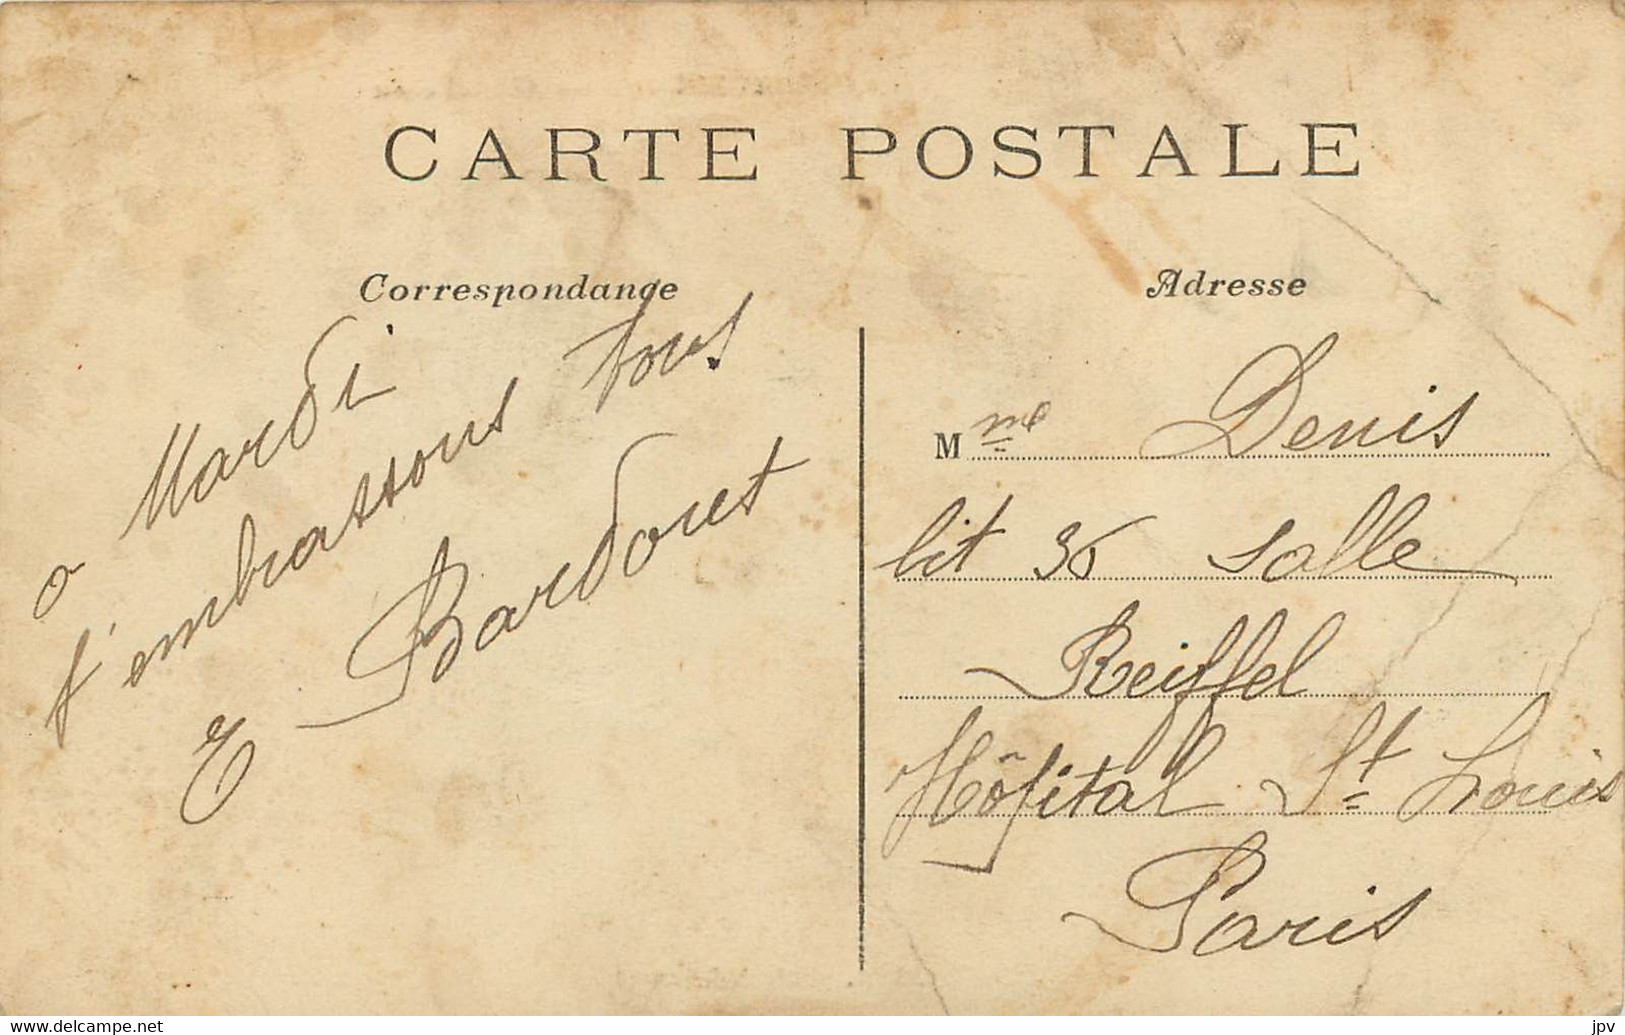 CARTE POSTALE
Correspondance
a Mardi
t'embrassons tous
E Bardout
Adresse
Mme Denis
lit 36 salle
Reiffel
Hôpital St Louis
Paris
www.delcampe.net
jpv